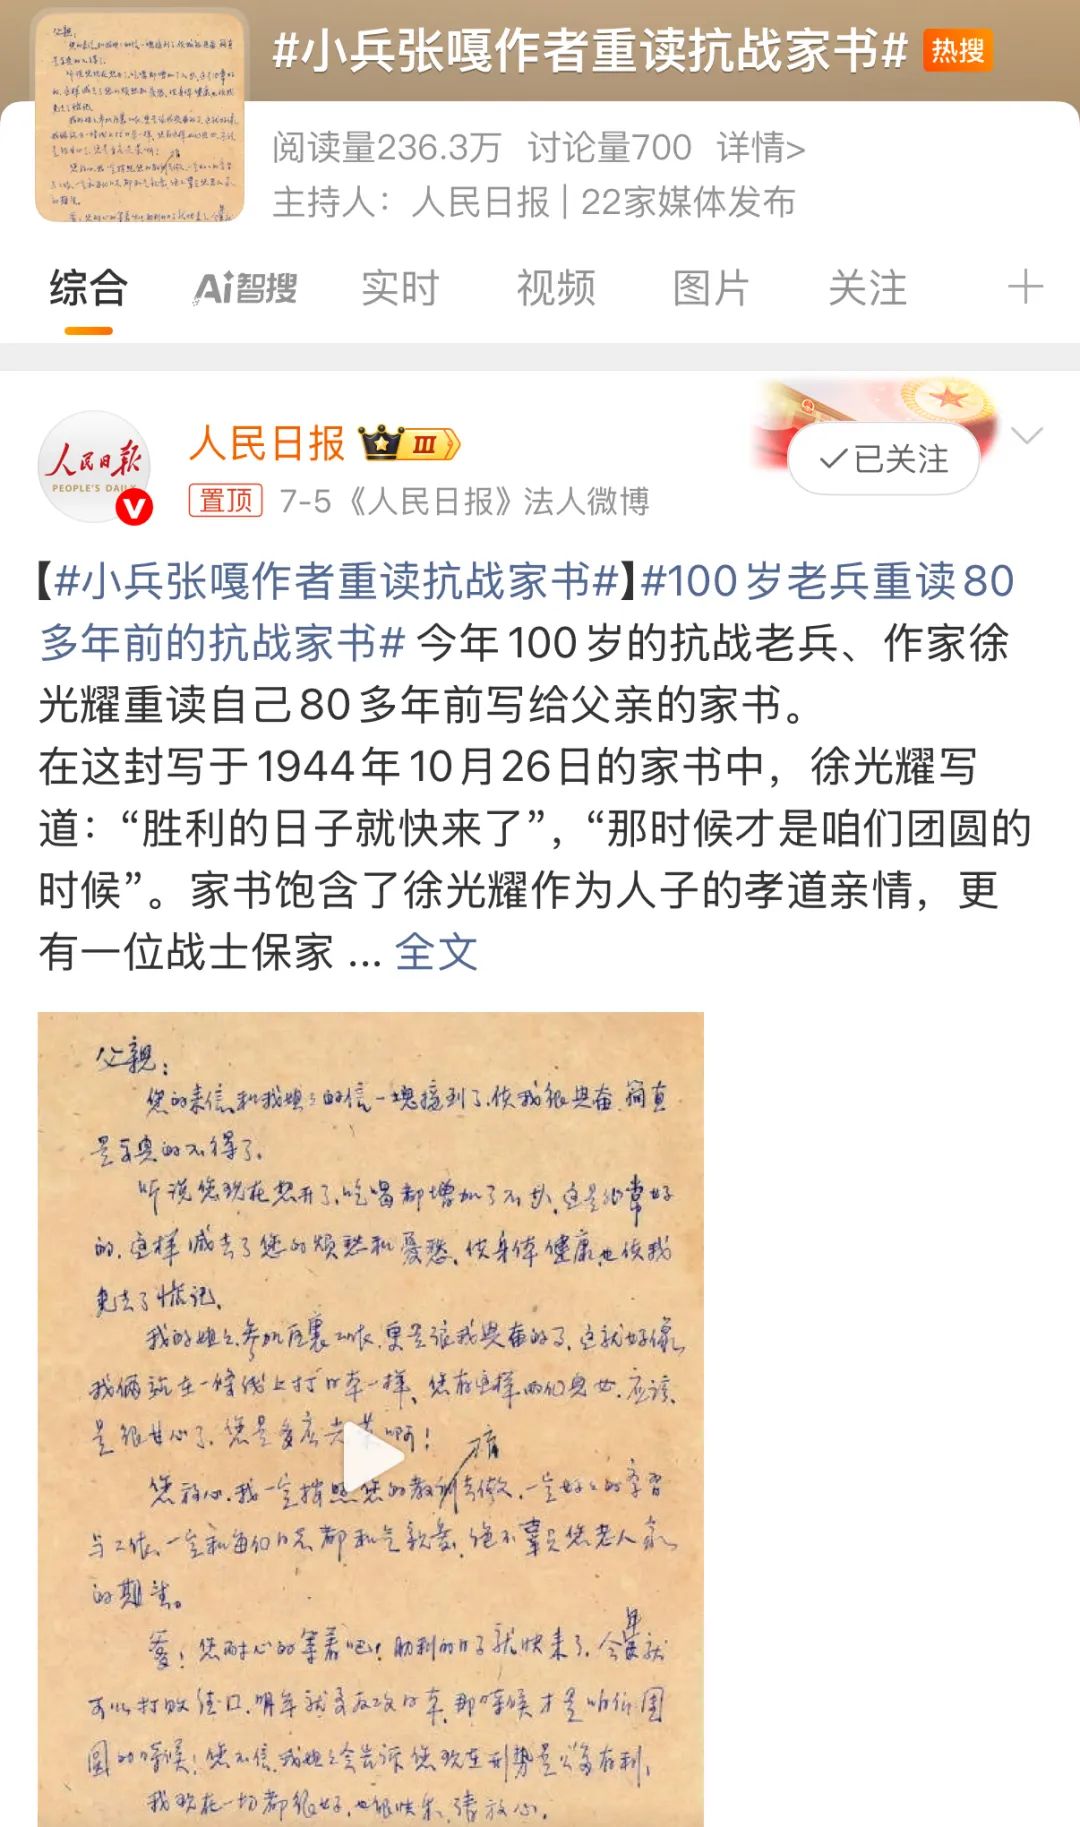 #小兵张嘎作者重读抗战家书# 热搜
阅读量236.3万 讨论量700 详情>
主持人：人民日报 | 22家媒体发布
综合 Ai智搜 实时 视频 图片 关注
人民日报
PEOPLE'S DAILY
人民日报 III
已关注
置顶 7-5 《人民日报》法人微博
【#小兵张嘎作者重读抗战家书#】#100岁老兵重读80
多年前的抗战家书# 今年100岁的抗战老兵、作家徐
光耀重读自己80多年前写给父亲的家书。
在这封写于1944年10月26日的家书中，徐光耀写
道：“胜利的日子就快来了”，“那时候才是咱们团圆的
时候”。家书饱含了徐光耀作为人子的孝道亲情，更
有一位战士保家 ... 全文
父親：
您的来信和我姐姐的信一塊接到了，使我很興奋，简直
是高興的不得了。
听说您现在想开了，吃喝都增加了不少，这是非常好
的，这样减去了您的烦愁和憂愁，使身体健康，也使我
免去了惦记。
我的姐姐参加区裏工作，更是讓我興奋的了，这就好像
我俩站在一條线上打日本一样，您有这样两个兒女，应该
是很甘心了，您是多麽光荣啊！
您放心，我一定按照您的教训去做，一定好好的学习
与工作，一定和每个同志都和气親爱，绝不辜负您老人家
的期望。
爹！您耐心的等着吧！勝利的日子就快来了，今年就
可以打败德国，明年就要反攻日本，那時候才是咱们团
圓的時候！您不信，我姐姐会告诉您现在形势是多么有利，
我现在一切都很好，也很快乐，请放心。